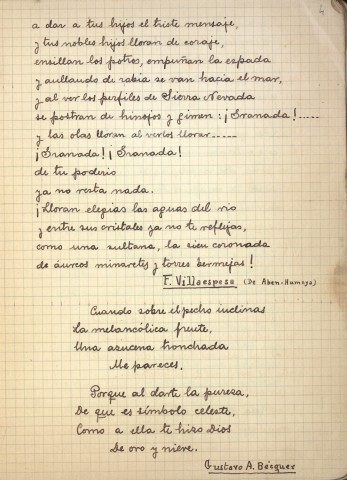 4
a dar a tus hijos el triste mensaje,
y tus nobles hijos lloran de coraje,
ensillan los potros, empuñan la espada
y aullando de rabia se van hacia el mar,
y al ver los perfiles de Sierra Nevada
se postran de hinojos y gimen: ¡Granada!.....
y las olas lloran al verlos llorar.....
¡Granada! ¡Granada!
de tu poderío
ya no resta nada.
¡Lloran elegías las aguas del río
y entre sus cristales ya no te reflejas,
como una sultana, la sien coronada
de áureos minaretes y torres bermejas!
F. Villaespesa (De Aben-Humeya)
Cuando sobre el pecho inclinas
La melancólica frente,
Una azucena tronchada
Me pareces.
Porque al darte la pureza,
De que es símbolo celeste,
Como a ella te hizo Dios
De oro y nieve.
Gustavo A. Bécquer